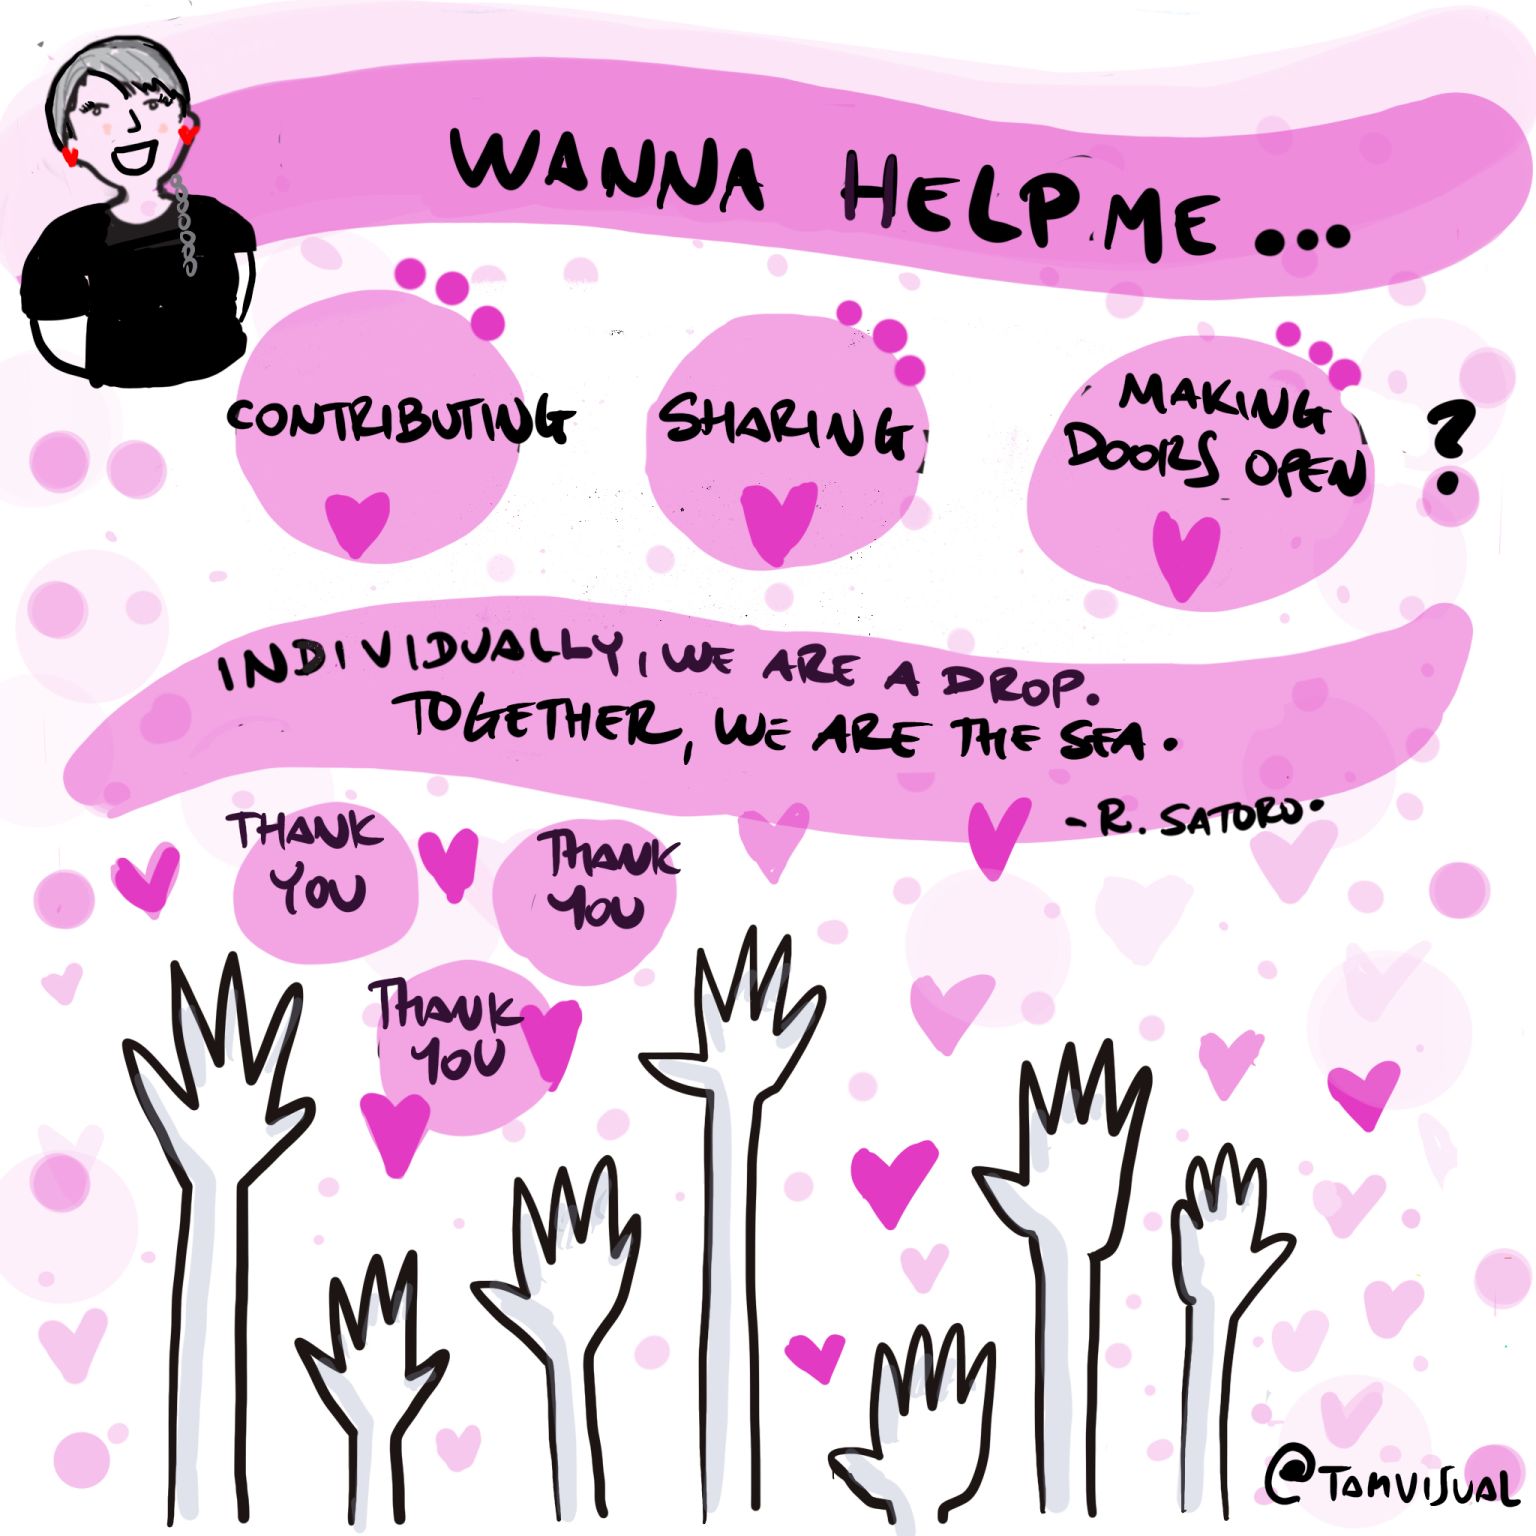 WANNA HELP ME...
CONTRIBUTING
SHARING
MAKING
DOORS OPEN
?
INDIVIDUALLY, WE ARE A DROP.
TOGETHER, WE ARE THE SEA.
- R. SATORO.
THANK
YOU
THANK
YOU
THANK
YOU
@TAMVISUAL